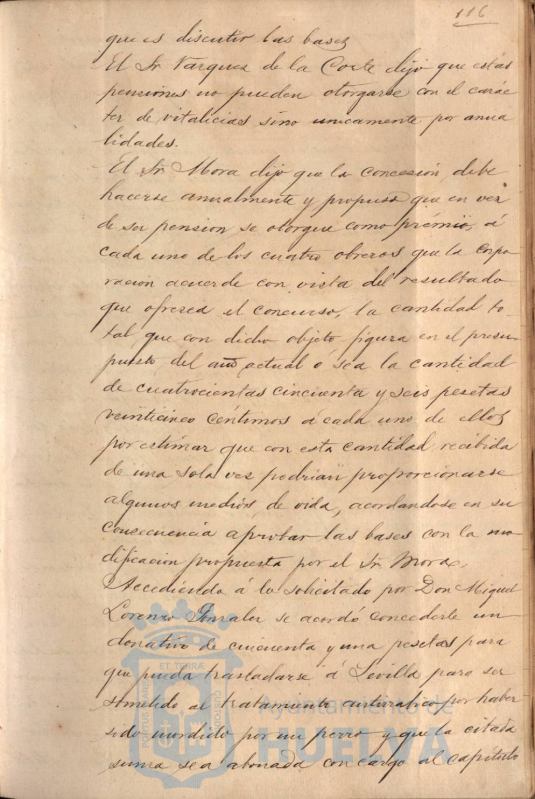 116
que es discutir las bases
El Sr Vazquez de la Corte dijo que estas
pensiones no pueden otorgarse con el carác
ter de vitalicias sino unicamente por anua
lidades.
El Sr Mora dijo que la concesión debe
hacerse anualmente y propuso que en vez
de ser pension se otorgue como prémio, á
cada uno de los cuatro obreros que la Corpo-
ración acuerde con vista del resultado
que ofrezca el concurso, la cantidad to-
tal que con dicho objeto figura en el presu-
puesto del año actual o sea la cantidad
de cuatrocientas cincuenta y seis pesetas
veinticinco céntimos á cada uno de ellos
por estimar que con esta cantidad recibida
de una sola vez podrian proporcionarse
algunos medios de vida, acordandose en su
consecuencia aprobar las bases con la mo-
dificacion propuesta por el Sr Mora.
Accediendo á lo solicitado por Don Miguel
Lorenzo Gonzalez se acordó concederle un
donativo de cincuenta y una pesetas para
que pueda trasladarse á Sevilla para ser
sometido al tratamiento antirrabico por haber
sido mordido por un perro y que la citada
suma sea abonada con cargo al capitulo
ET TERRÆ
Ayuntamiento de
HUELVA